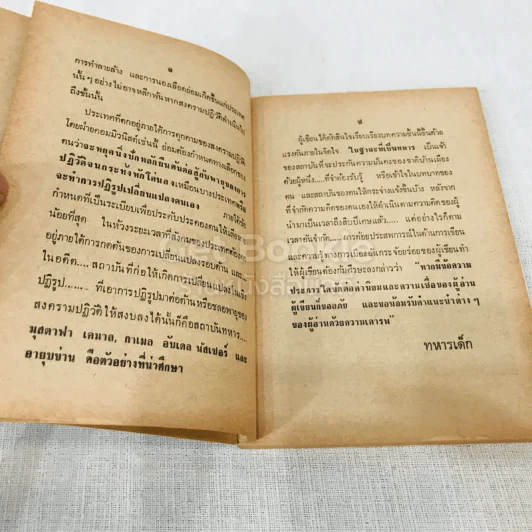 การทำลายล้าง และการนองเลือดย่อมเกิดขึ้นแก่ประเทศ
นั้นๆ อย่างไม่อาจหลีกพ้นหากสงครามปฏิวัติดำเนินไป
ถึงขั้นนั้น
ประเทศที่ตกอยู่ภายใต้การคุกคามของสงครามปฏิวัติ
โดยฝ่ายคอมมิวนิสต์เช่นนี้ ย่อมต้องกำหนดทางเลือกของ
ตนว่าจะหยุดนิ่งปักหลักยืนต้นต่อสู้กับพายุสงคราม
ปฏิวัติจนกระทั่งหักโค่นลง เหมือนบางประเทศหรือ
จะทำการปฏิรูปเปลี่ยนแปลงตนเอง ภายใต้ข้อ
กำหนดที่เป็นระเบียบเพื่อประคับประคองตนให้เสียหาย
น้อยที่สุด ในห้วงระยะเวลาที่สังคมของประเทศต้อง
อยู่ภายใต้การกดดันของการเปลี่ยนแปลงรอบด้าน และ
ในอดีต.... สถาบันที่ก่อให้เกิดการเปลี่ยนแปลง
ปฏิรูป..... หันเอาการปฏิรูปมาต่อต้านหรือชะลอพายุของ
สงครามปฏิวัติให้สงบลงได้นั้นก็คือสถาบันทหาร....
มุสตาฟา เคมาล, กาเมล อับเดล นัสเซอร์ และ
อายุบข่าน คือตัวอย่างที่น่าศึกษา
ผู้เขียนได้ตัดสินใจเรียบเรียงบทความชิ้นนี้ขึ้นด้วย
แรงดันภายในจิตใจ ในฐานะที่เป็นทหาร เป็นเจ้า
ของสถาบันที่จะประกันความมั่นคงของชาติบ้านเมือง
ด้วยผู้หนึ่ง.... ที่จำต้องรับรู้ หรือเข้าใจในบทบาทของ
ตน และสถาบันของตนให้กระจ่างแจ้งขึ้นบ้าง หลังจาก
ที่จำกัดความคิดของตนเองให้ดำเนินตามความคิดของผู้
นำมาเป็นเวลาถึงสิบปีเศษแล้ว.... แต่อย่างไรก็ตาม
เวลาอันจำกัด.... การด้อยประสบการณ์ในด้านการเขียน
และความรู้ทางการเมืองอันกระจ้อยร่อยของผู้เขียนทำ
ให้ผู้เขียนต้องก้มศีรษะลงกล่าวว่า "หากมีข้อความ
ประการใดขัดต่อค่านิยมและความเชื่อของผู้อ่าน
ผู้เขียนก็ขออภัย และขอน้อมรับคำแนะนำต่าง ๆ
ของผู้อ่านด้วยความเคารพ"
ทหารเด็ก